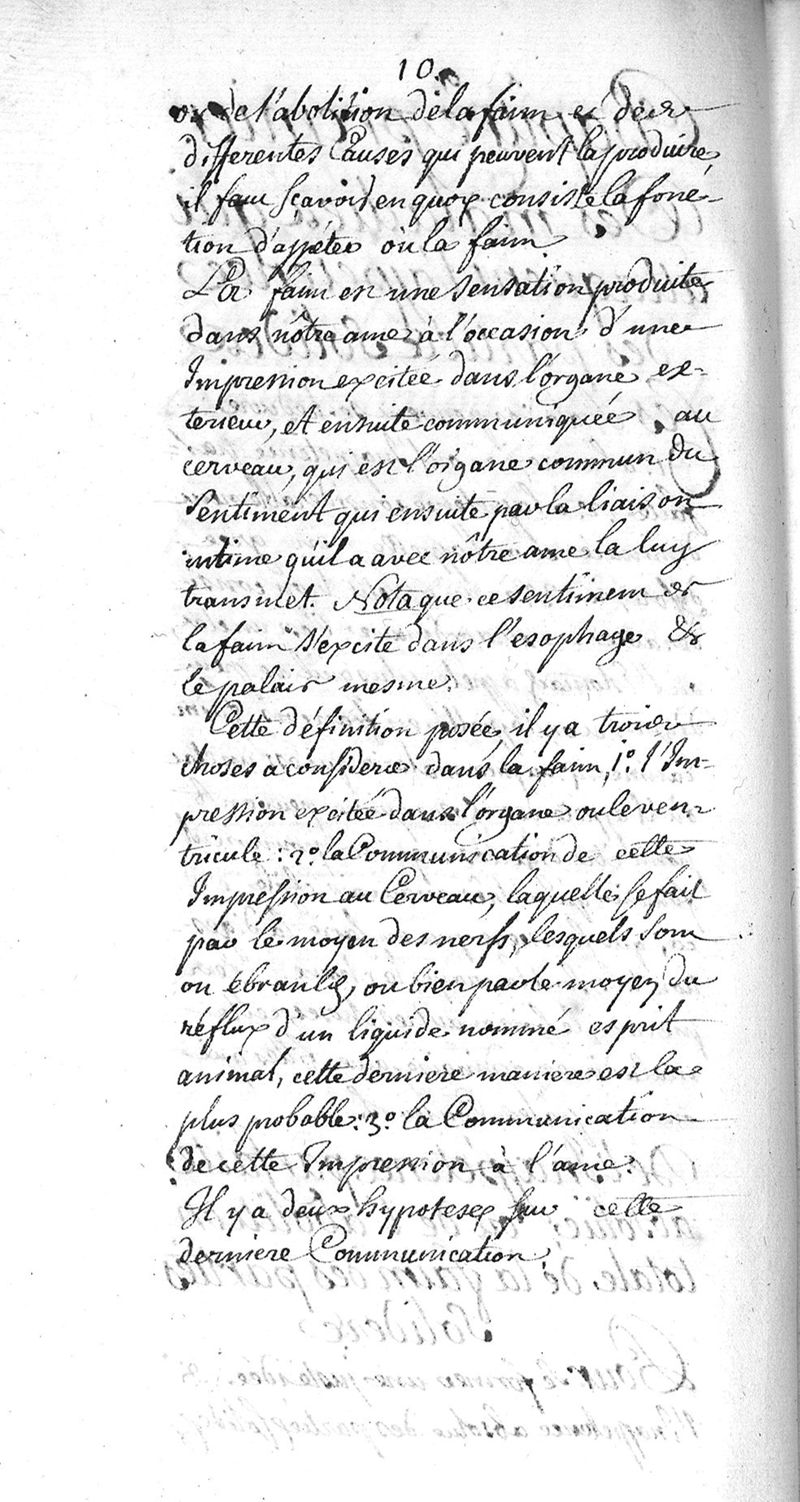 10.
ou de l'abolition de la faim et des
differentes Causes qui peuvent la produire,
il faut sçavoir en quoy consiste la fonc-
tion d'appéter ou la faim
La faim est une sensation produite
dans nôtre ame à l'occasion d'une
Impression excitée dans l'organe ex-
terieur, et ensuite communiquée au
cerveau, qui est l'organe commun du
Sentiment qui ensuite par la liaison
intime qu'il a avec nôtre ame la luy
transmet. Nota que ce sentiment de
la faim s'excite dans l'esophage &
le palais mesme.
Cette définition posée, il y a trois
choses a considerer dans la faim, 1º. l'Im-
pression excitée dans l'organe ou le ven-
tricule : 2º. la Communication de cette
Impression au Cerveau, laquelle se fait
par le moyen des nerfs, lesquels sont
ou ébranlés, ou bien par le moyen du
réflux d'un liquide nommé esprit
animal, cette derniere maniere est la
plus probable. 3º. la Communication
de cette Impression à l'ame.
Il y a deux hypoteses sur cette
derniere Communication